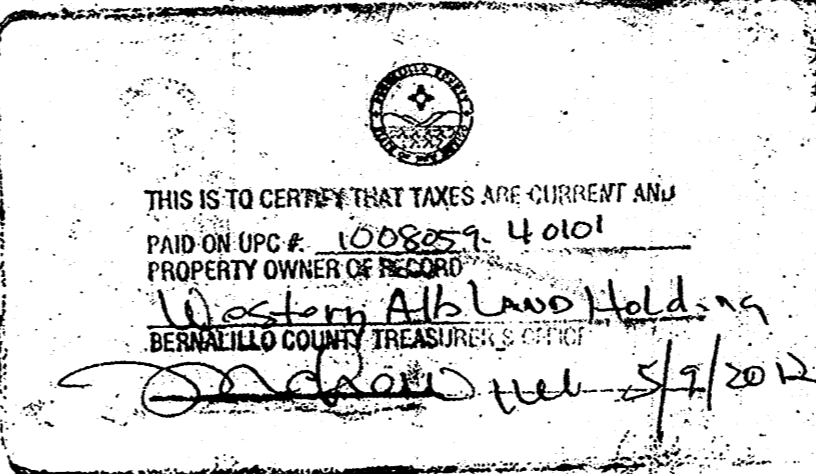 THIS IS TO CERTIFY THAT TAXES ARE CURRENT AND
PAID ON UPC #. 1008059-40101
PROPERTY OWNER OF RECORD
Western Alb LAND Holding
BERNALILLO COUNTY TREASURER'S OFFICE
5/9/2012